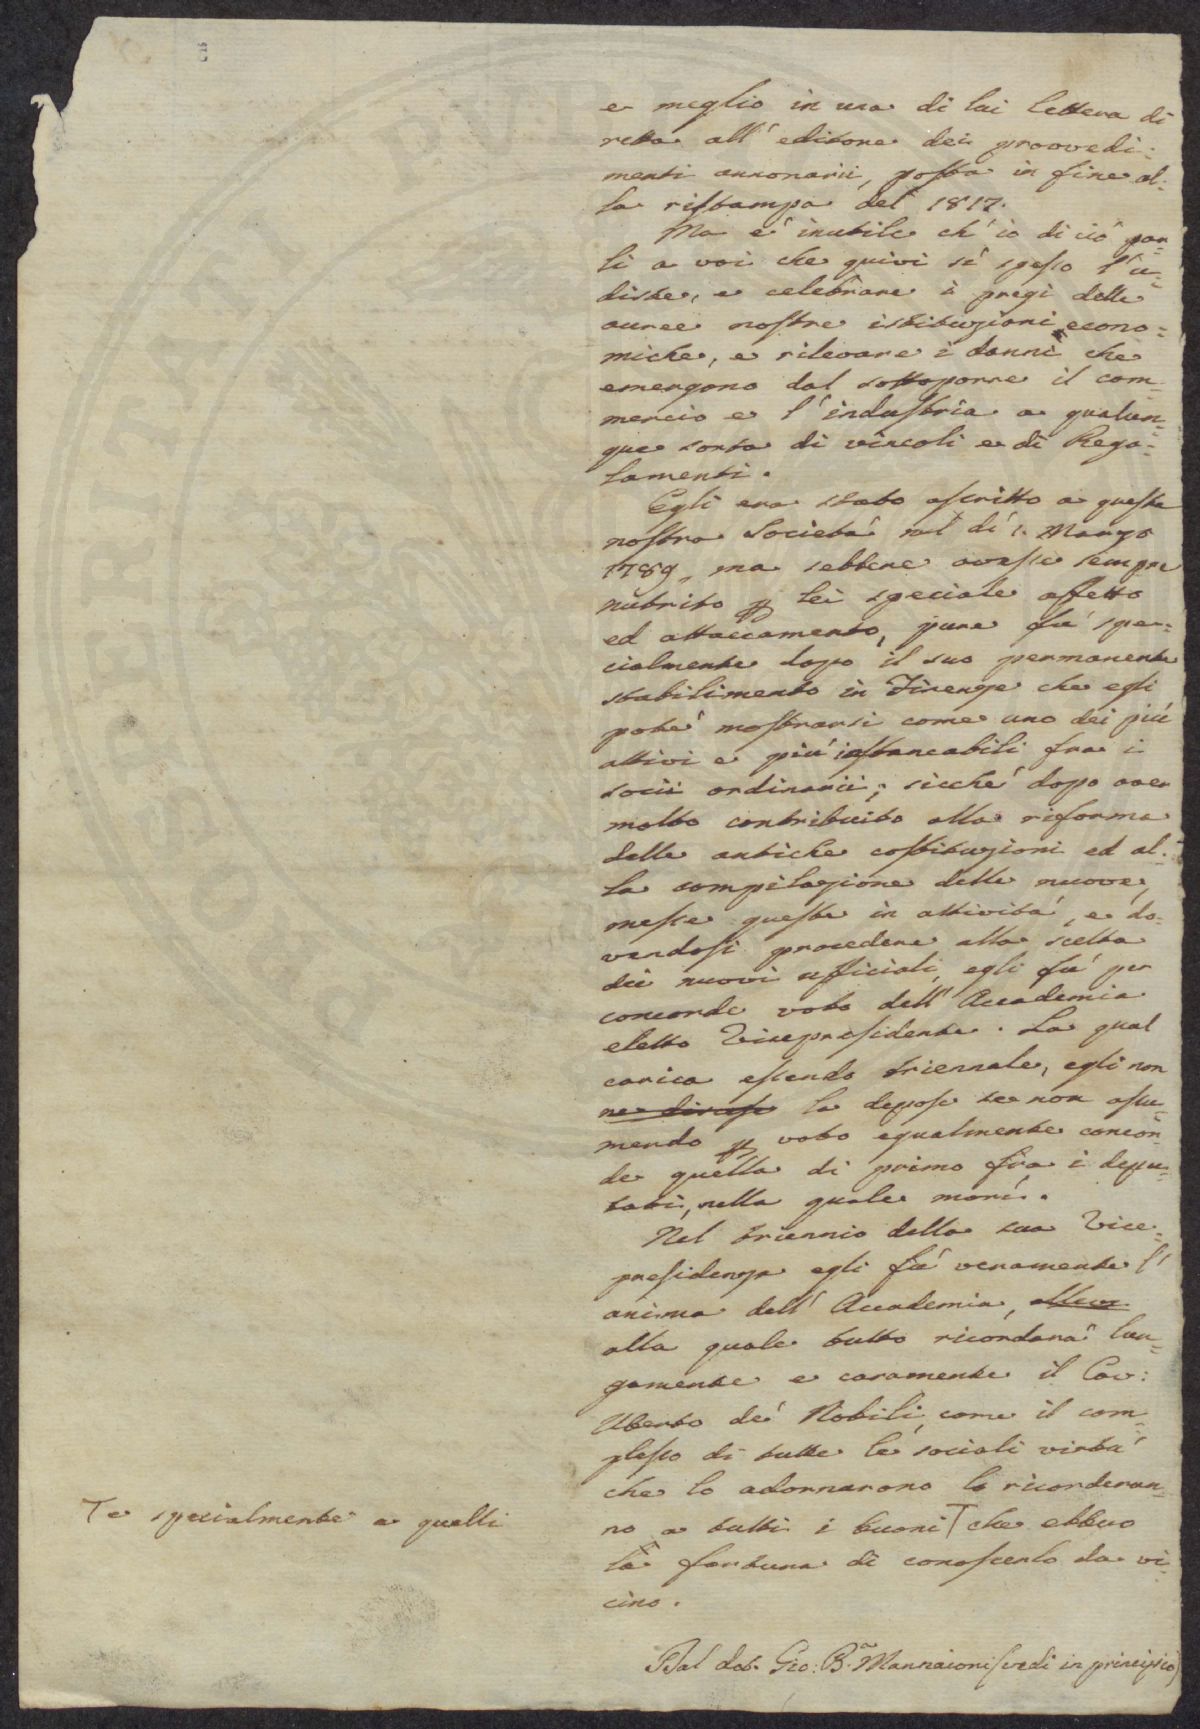 e meglio in una di lui lettera di
retta all'editore dei provvedi=
menti annonarii, posta in fine al=
la ristampa del 1817.
Ma è inutile ch'io di ciò par=
li a voi che quivi sì spesso l'u=
diste, e celebrare i pregi delle
auree nostre istituzioni econo=
miche, e rilevare i danni che
emergono dal sottoporre il com=
mercio e l'industria a qualun=
que sorta di vincoli e di Rego=
lamenti.
Egli era stato ascritto a questa
nostra Società nel dì 1. Marzo
1789, ma sebbene avesse sempre
nutrito p lei speciale affetto
ed attaccamento, pure fù spe=
cialmente dopo il suo permanente
stabilimento in Firenze che egli
poté mostrarsi come uno dei più
attivi e più instancabili fra i
socii ordinarii; sicché dopo aver
molto contribuito alla riforma
delle antiche costituzioni ed al=
la compilazione delle nuove,
messe queste in attività, e do=
vendosi procedere alla scelta
dei nuovi ufficiali, egli fù per
concorde voto dell'Accademia
eletto Vicepresidente. La qual
carica essendo triennale, egli non
ne la depose se non assu=
mendo p voto egualmente concor=
de quella di primo fra i depu=
tati, nella quale morì.
Nel triennio della sua Vice=
presidenza egli fù veramente l'
anima dell'Accademia,
alla quale tutto ricorderà lun=
gamente e caramente il Cav:
Uberto de' Nobili, come il com=
plesso di tutte le sociali virtù
che lo adornarono lo ricorderan=
no a tutti i buoni T che ebbero
T e specialmente a quelli
la fortuna di conoscerlo da vi=
cino.
Dal dot. Gio: B.a Mannaioni (vedi in principio)